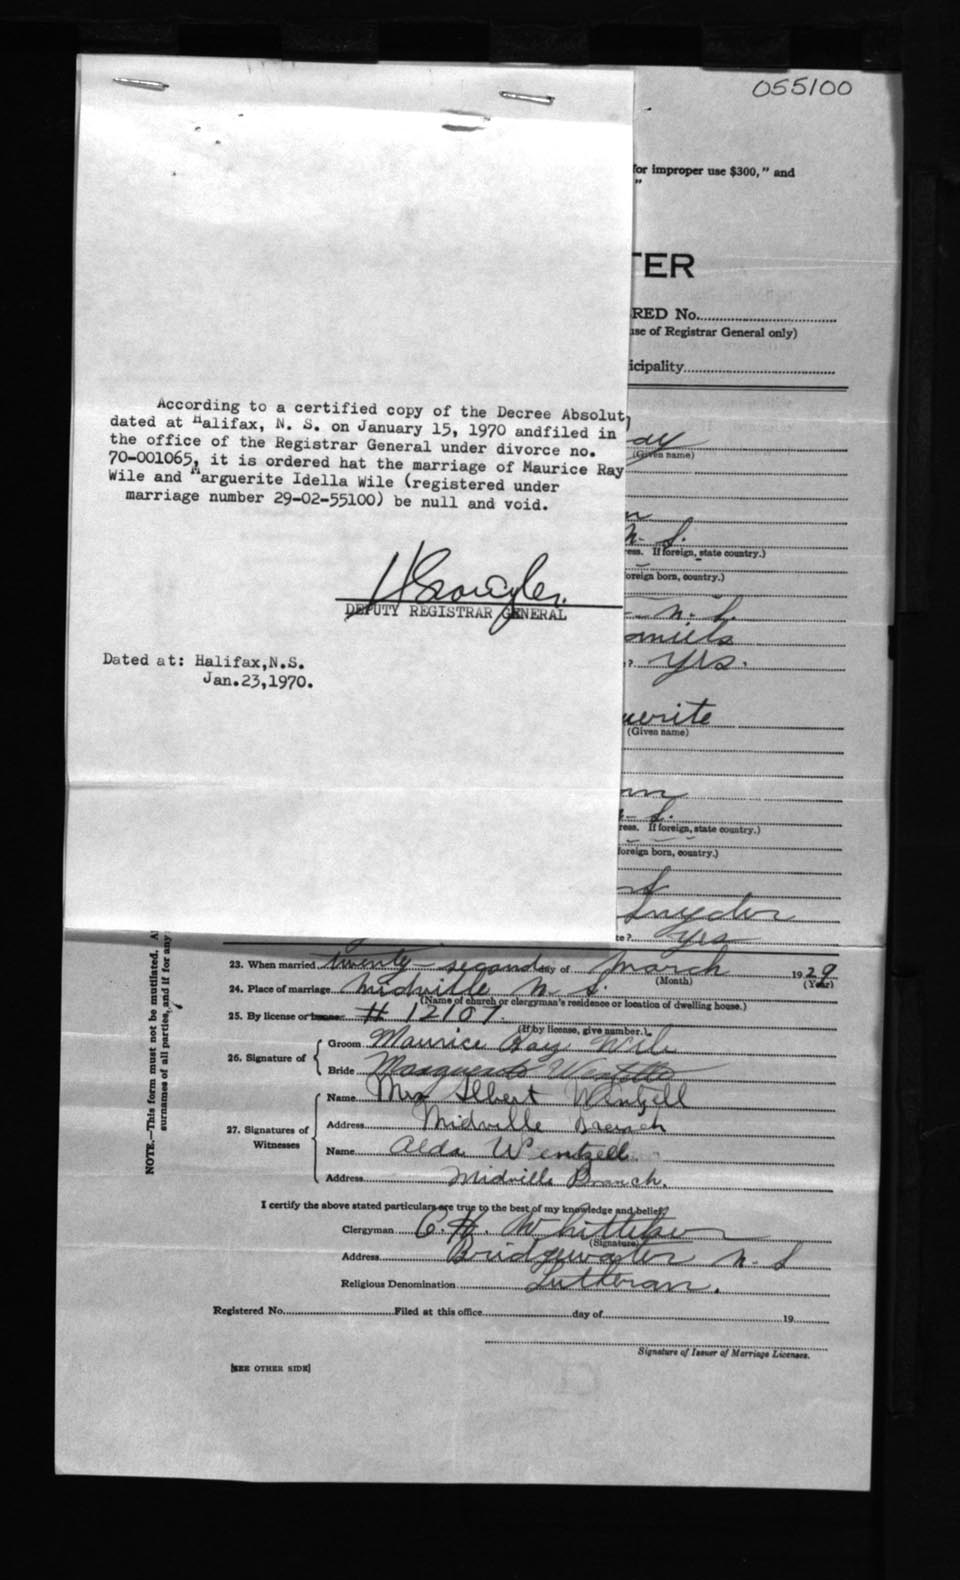 055100
for improper use $300," and
"
TER
RED No.
use of Registrar General only)
icipality
According to a certified copy of the Decree Absolut,
dated at Halifax, N. S. on January 15, 1970 andfiled in
the office of the Registrar General under divorce no.
70-001065, it is ordered hat the marriage of Maurice Ray
Wile and Marguerite Idella Wile (registered under
marriage number 29-02-55100) be null and void.
DEPUTY REGISTRAR GENERAL
Dated at: Halifax,N.S.
Jan.23,1970.
ay
(Given name)
n
N. S.
ress. If foreign, state country.)
foreign born, country.)
N. S.
? Yes.
uerite
(Given name)
S.
ress. If foreign, state country.)
foreign born, country.)
S
Snyder
te? yes
NOTE.—This form must not be mutilated. A
surnames of all parties, and if for any
23. When married twenty-second day of March 1929
(Month) (Year)
24. Place of marriage Midville N S.
(Name of church or clergyman's residence or location of dwelling house.)
25. By license or banns # 12107.
(If by license, give number.)
26. Signature of
Groom Maurice Ray Wile
Bride Marguerite Wentzell
27. Signatures of Witnesses
Name Mrs Albert Wentzell
Address Midville Branch
Name Alda Wentzell
Address Midville Branch.
I certify the above stated particulars are true to the best of my knowledge and belief.
Clergyman C. H. Whitteker
(Signature)
Address Bridgewater N. S
Religious Denomination Lutheran.
Registered No. Filed at this office day of 19
Signature of Issuer of Marriage Licenses.
[SEE OTHER SIDE]